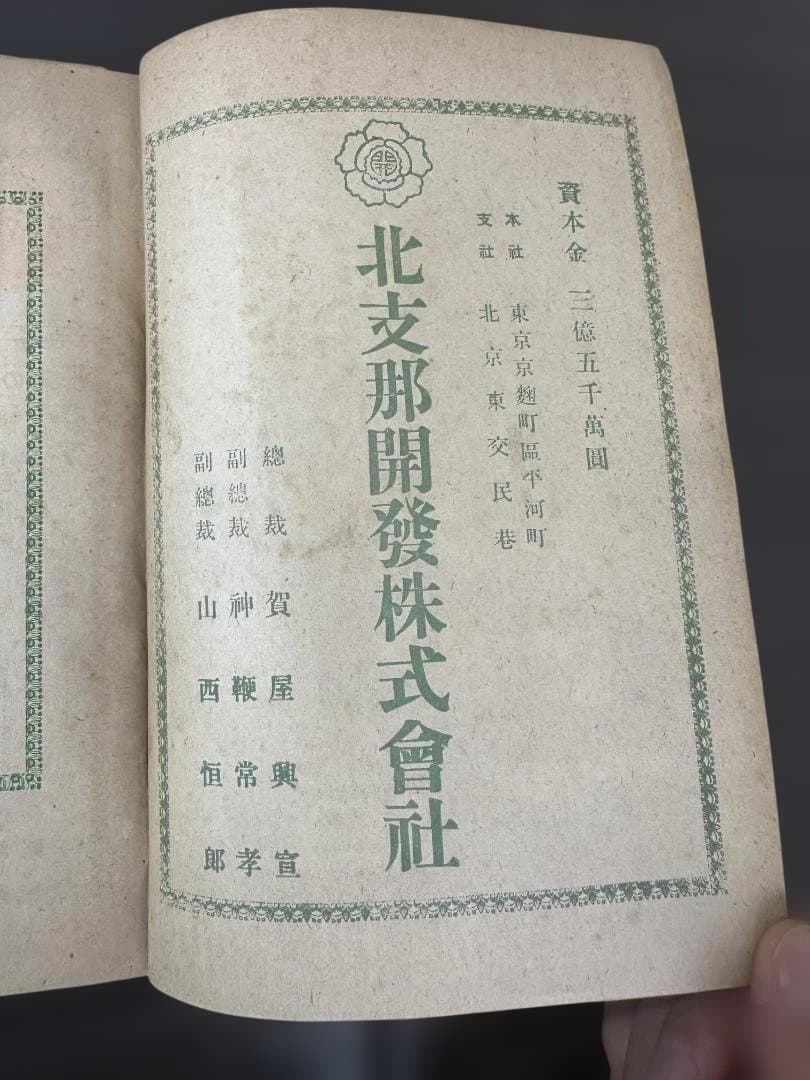 資本金 三億五千萬圓
本社 東京京麴町區平河町
支社 北京東交民巷
北支那開發株式會社
總裁 賀屋興宣
副總裁 神鞭常孝
副總裁 山西恒郎